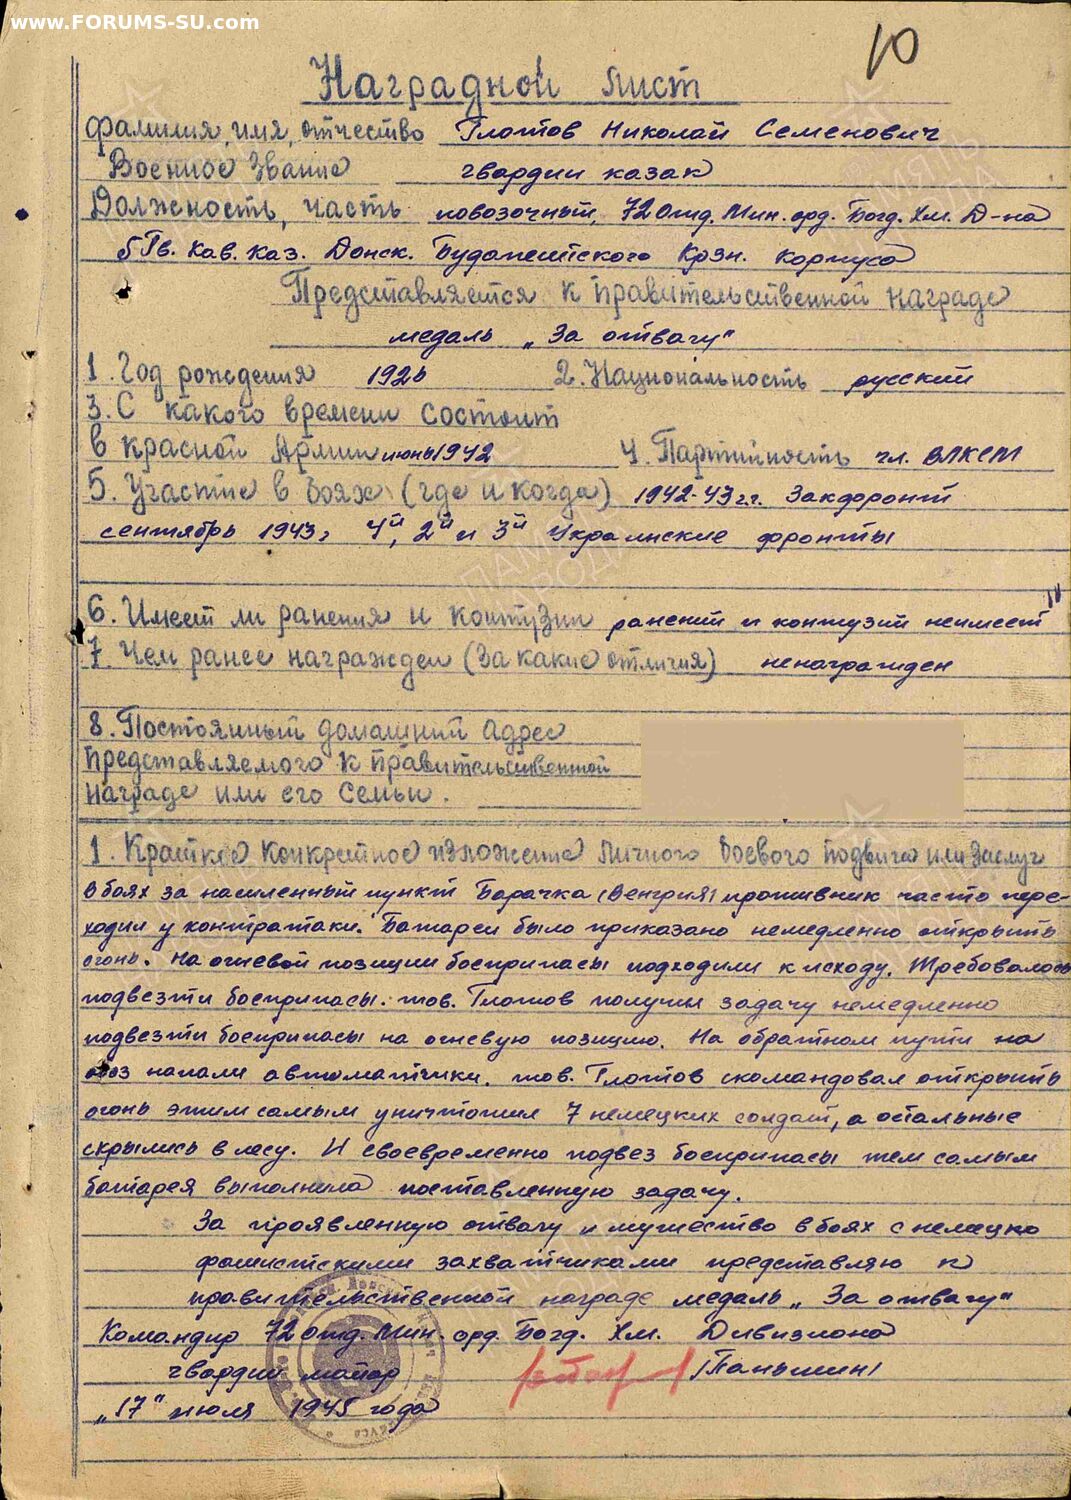 www.FORUMS-SU.com
10
Наградной лист
Фамилия, имя, отчество Глотов Николай Семенович
Военное звание гвардии казак
Должность, часть повозочный, 72 отд. Мин. орд. Богд. Хм. Д-на
5 Гв. Кав. Каз. Донск. Будапештского Крзн. корпуса
Представляется к правительственной награде
медаль „За отвагу"
1. Год рождения 1926 2. Национальность русский
3. С какого времени состоит
в красной Армии июнь 1942 4. Партийность чл. ВЛКСМ
5. Участие в боях (где и когда) 1942-43 г.г. Закфронт
сентябрь 1943г 4й, 2й и 3й Украинские фронты
6. Имеет ли ранения и контузии ранений и контузий неимеет
7. Чем ранее награжден (за какие отличия) ненагражден
8. Постоянный домашний адрес
представляемого к правительственной
награде или его семьи.
1. Краткое конкретное изложение личного боевого подвига или заслуг
В боях за населенный пункт Барачка (Венгрия) противник часто пере-
ходил у контратаки. Батареи было приказано немедленно открыть
огонь. На огневой позиции боеприпасы подходили к исходу. Требовалось
подвезти боеприпасы. тов. Глотов получил задачу немедленно
подвезти боеприпасы на огневую позицию. На обратном пути на
обоз напали автоматчики. тов. Глотов скомандовал открыть
огонь этим самым уничтожил 7 немецких солдат, а остальные
скрылись в лесу. И своевременно подвез боеприпасы тем самым
батарея выполнила поставленную задачу.
За проявленную отвагу и мужество в боях с немецко
фашистскими захватчиками представляю к
правительственной награде медаль „За отвагу"
Командир 72 отд. Мин. орд. Богд. Хм. Дивизиона
гвардии майор /Паньшин/
„17" июля 1945 года